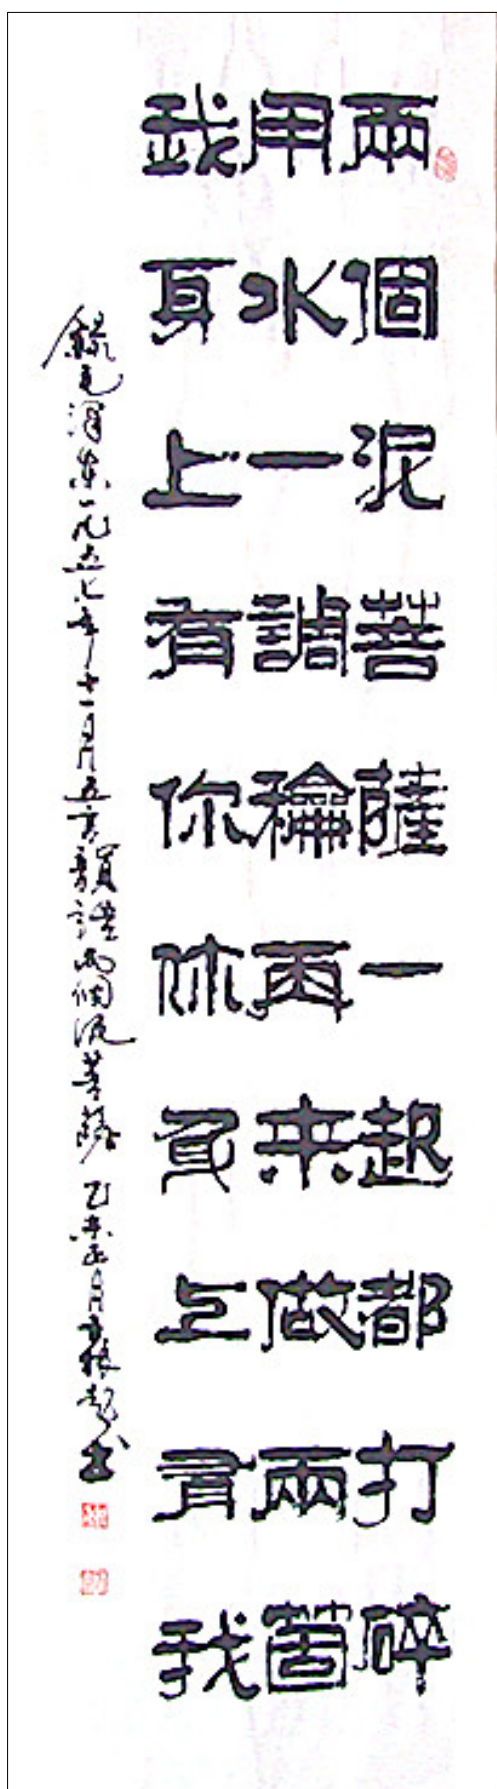 兩個泥菩薩一起都打碎
用水一調龢再来做兩箇
我身上有你你身上有我
錄毛澤東一九五七年十一月五言韻兩個泥菩薩 乙未正月書